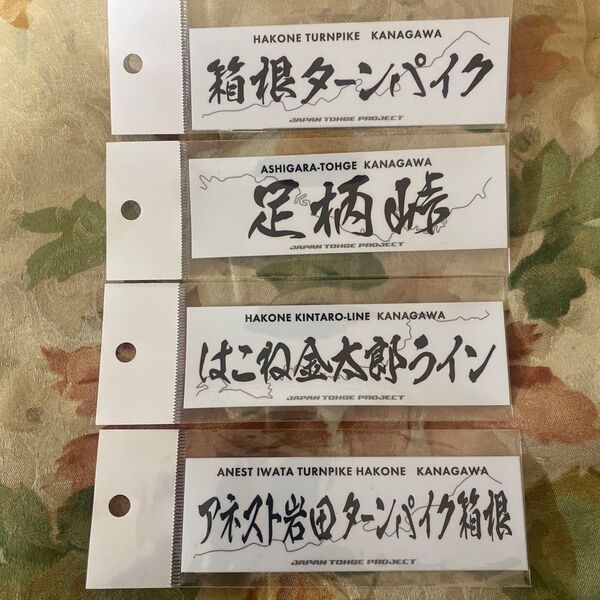 HAKONE TURNPIKE KANAGAWA
箱根ターンパイク
JAPAN TOHGE PROJECT
ASHIGARA-TOHGE KANAGAWA
足柄峠
JAPAN TOHGE PROJECT
HAKONE KINTARO-LINE KANAGAWA
はこね金太郎ライン
JAPAN TOHGE PROJECT
ANEST IWATA TURNPIKE HAKONE KANAGAWA
アネスト岩田ターンパイク箱根
JAPAN TOHGE PROJECT